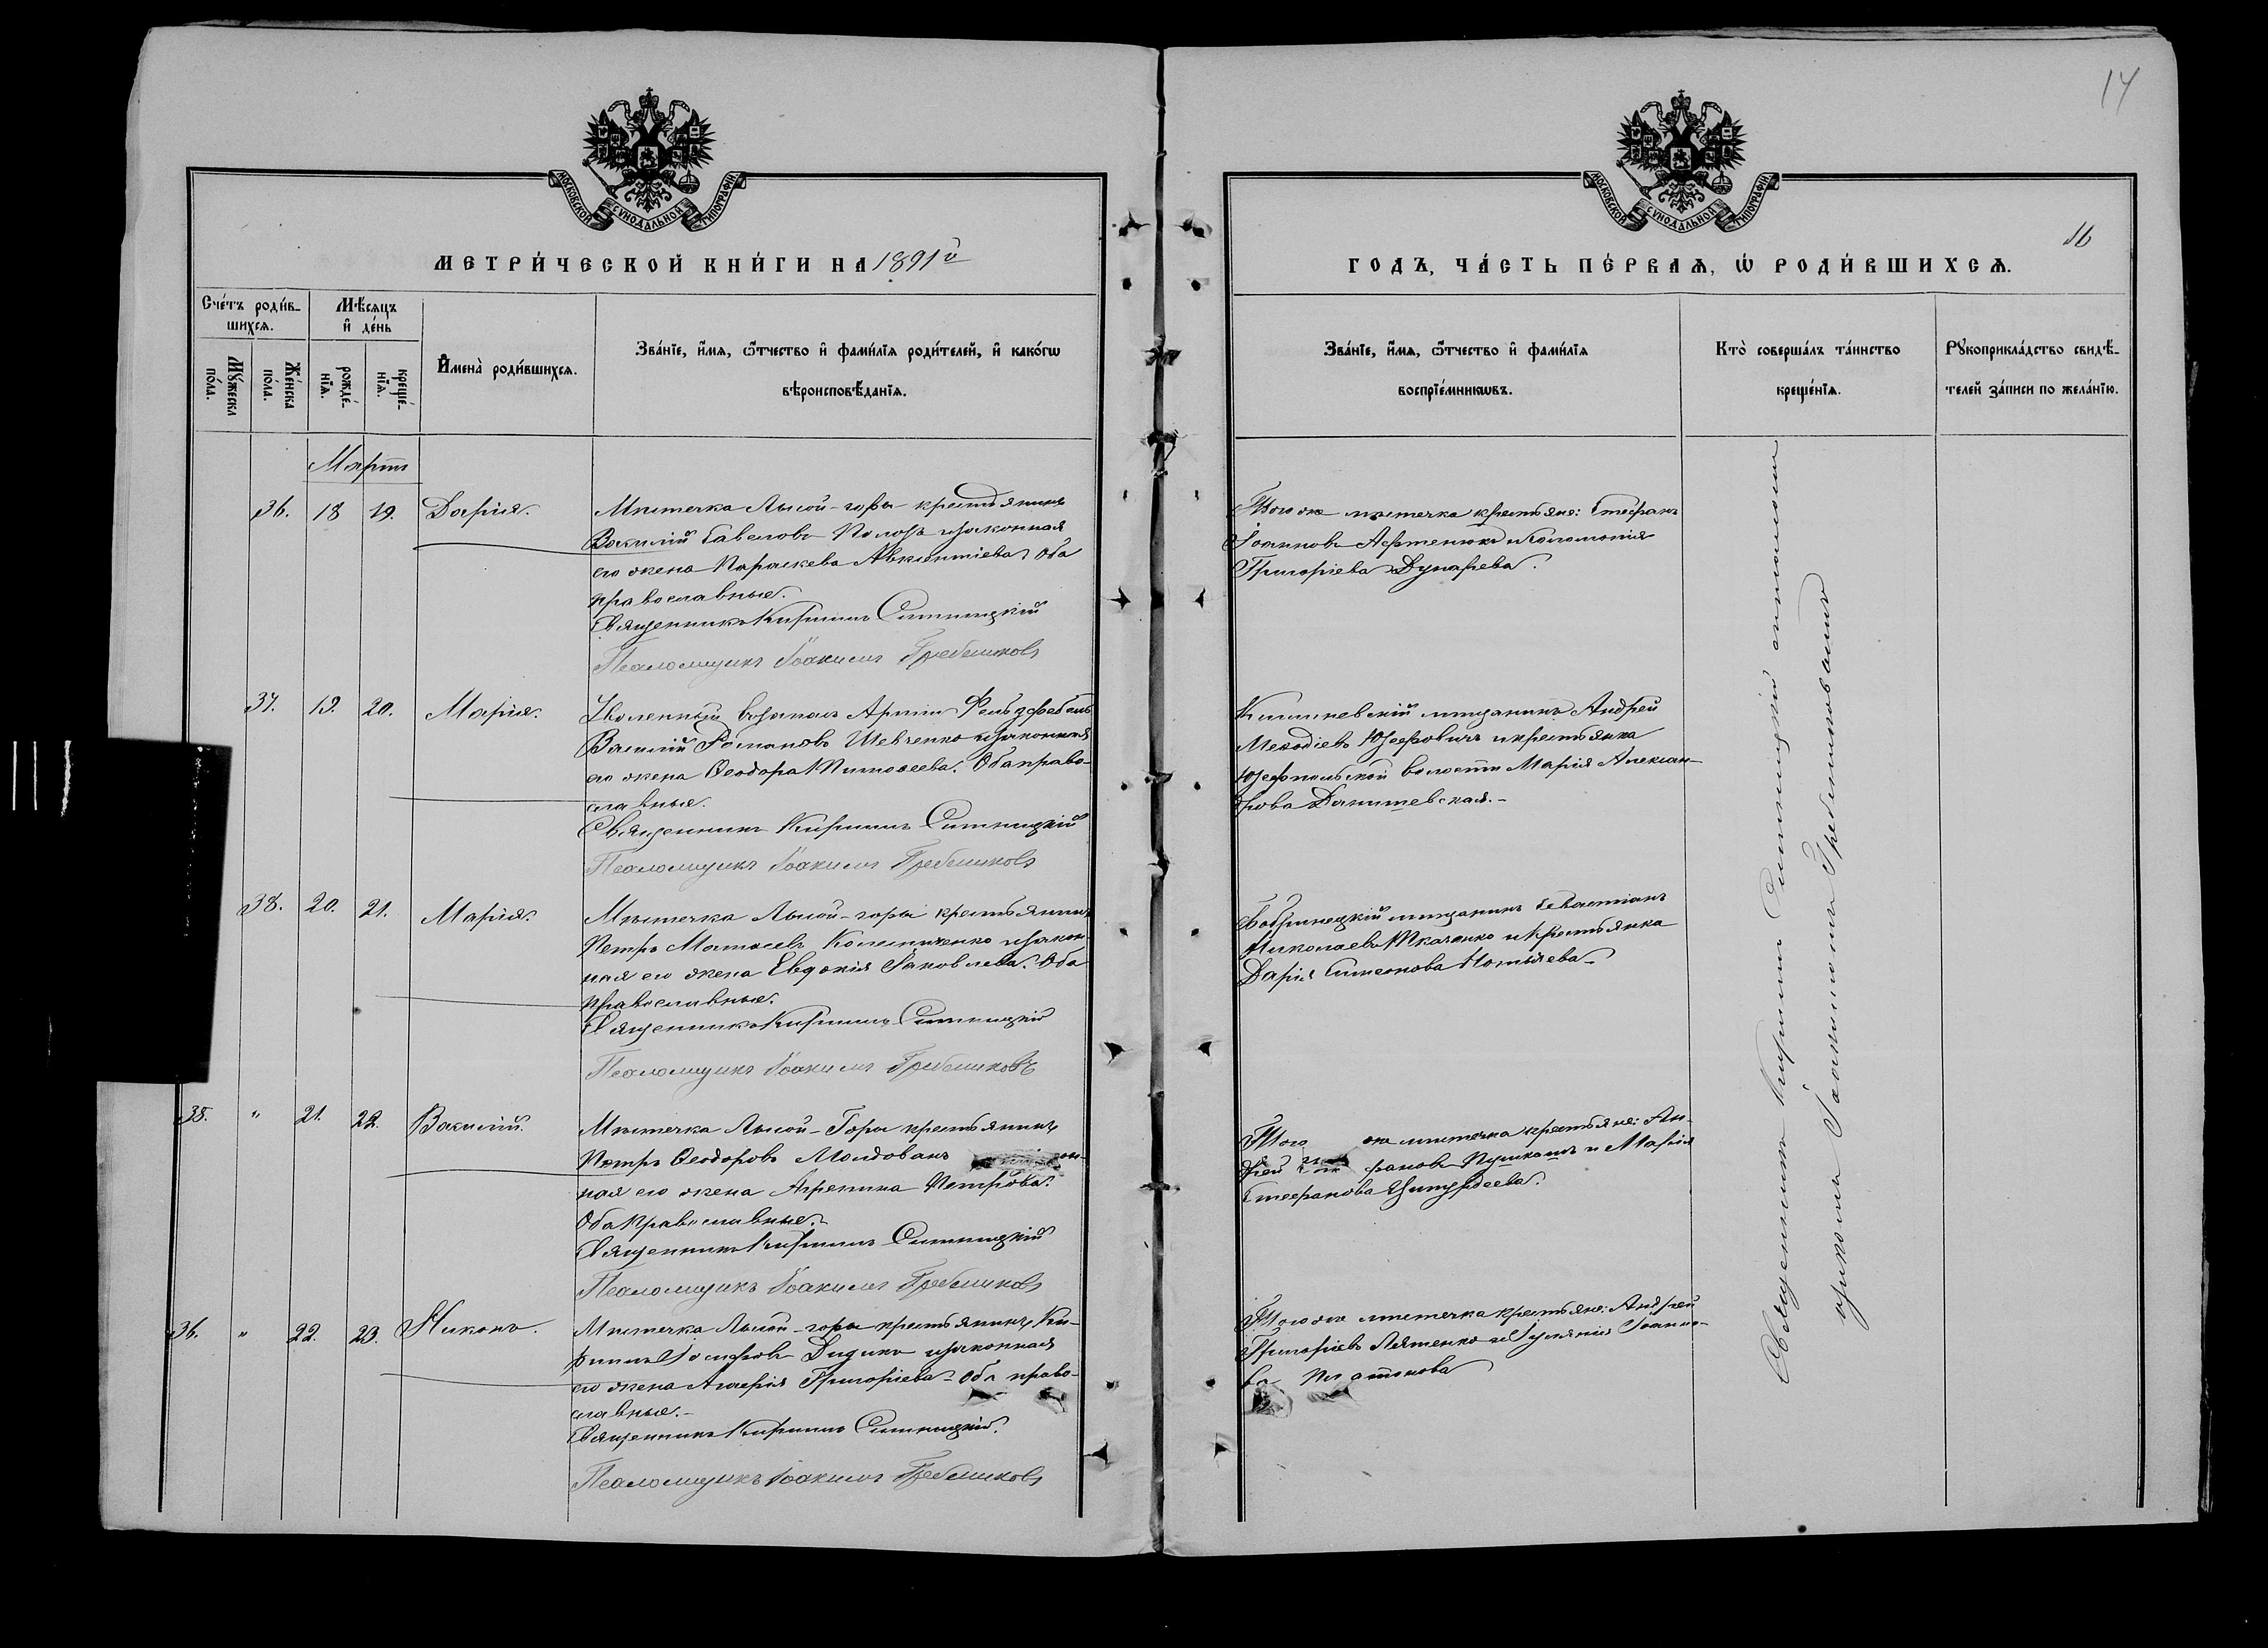 14
МОСКОВСКОЙ СѴНОДАЛЬНОЙ ТИПОГРАФІИ
МОСКОВСКОЙ СѴНОДАЛЬНОЙ ТИПОГРАФІИ
16
МЕТРИ́ЧЕСКОЙ КНИ́ГИ НА 1891й
ГОДЪ, ЧА́СТЬ ПЕ́РВАѦ, Ѡ҆ РОДИ́ВШИХСѦ.
Сче́тъ роди́в-
шихсѧ.
Мꙋ́жеска
по́ла.
Же́нска
по́ла.
Мѣ́сѧцъ
и҆ де́нь
рожде́-
нїѧ.
креще́-
нїѧ.
И҆мена̀ роди́вшихсѧ.
Зва́нїе, и҆́мѧ, ѻ҆́тчество и҆ фами́лїѧ роди́телей, и҆ како́гѡ
вѣроисповѣ́данїѧ.
Зва́нїе, и҆́мѧ, ѻ҆́тчество и҆ фами́лїѧ
воспрїе́мникѡвъ.
Кто̀ соверша́лъ та́инство
креще́нїѧ.
Рꙋкоприкла́дство свидѣ́-
телей за́писи по жела́нїю.
Мартъ
36. 18 19. Дарія.
Мѣстечка Лысой-горы крестьянинъ
Василій Савеловъ и законная
его жена Параскева Авксентіева. Оба
православные.
Священникъ Кириллъ Ситницкій
Псаломщикъ Іоакимъ Гребениковъ
Того же мѣстечка крестьяне: Стефанъ
Іоанновъ Афтенюкъ и Соломонія
Григоріева Дударева.
37. 19. 20. Марія.
Уволенный въ запасъ Арміи Фельдфебель
Василій Романовъ Шевченко и законная
его жена Ѳеодора Тимоѳеева. Оба право-
славные.
Священникъ Кириллъ Ситницкій
Псаломщикъ Іоакимъ Гребениковъ
Кишиневскій мѣщанинъ Андрей
Меѳодіевъ Юзефовичъ и крестьянка
Юзефпольской волости Марія Алексан-
дрова Данишевская.-
38. 20. 21. Марія.
Мѣстечка Лысой-горы крестьянинъ
Петръ Матѳеевъ Колесниченко и закон-
ная его жена Евдокія Іаковлева. Оба
православные.
Священникъ Кириллъ Ситницкій
Псаломщикъ Іоакимъ Гребениковъ
Бобринецкій мѣщанинъ Севастіанъ
Николаевъ Ткаченко и крестьянка
Дарія Симеонова
35. " 21. 22. Василій.
Мѣстечка Лысой-Горы крестьянинъ
Петръ Ѳеодоровъ Молдованъ он-
ная его жена Агрепина Петрова.
Оба православные.
Священникъ Кириллъ Ситницкій
Псаломщикъ Іоакимъ Гребениковъ
Того же мѣстечка крестьяне: Ан-
дрей Пушкашъ и Марія
Стефанова
36. " 22. 23. Никонъ.
Мѣстечка Лысой-горы крестьянинъ Ки-
риллъ Дидикъ и законная
его жена Григоріева. Оба право-
славные.-
Священникъ Кириллъ Ситницкій.
Псаломщикъ Іоакимъ Гребениковъ
Того же мѣстечка крестьяне: Андрей
Григоріевъ Лятенко и Іуліанія Іоанно-
ва Платонова
Священникъ Кириллъ Ситницкій съ псаломщи-
комъ Іоакимомъ Гребениковымъ